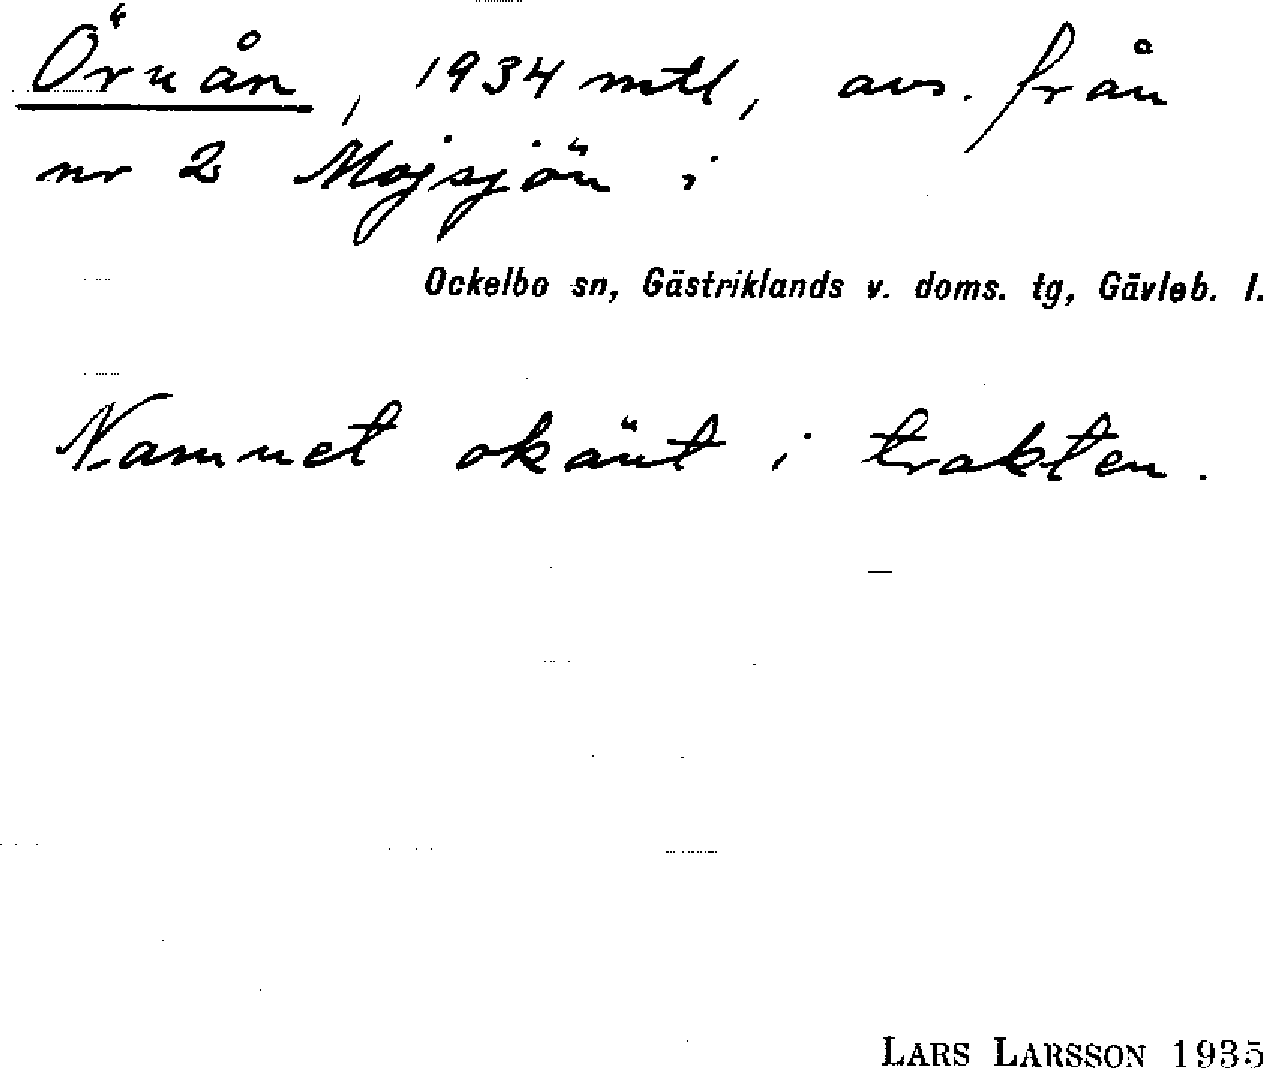 Örnån, 1934 mtl, avs. från
nr 2 Mojsjön i
Ockelbo sn, Gästriklands v. doms. tg, Gävleb. l.
Namnet okänt i trakten.
LARS LARSSON 1935